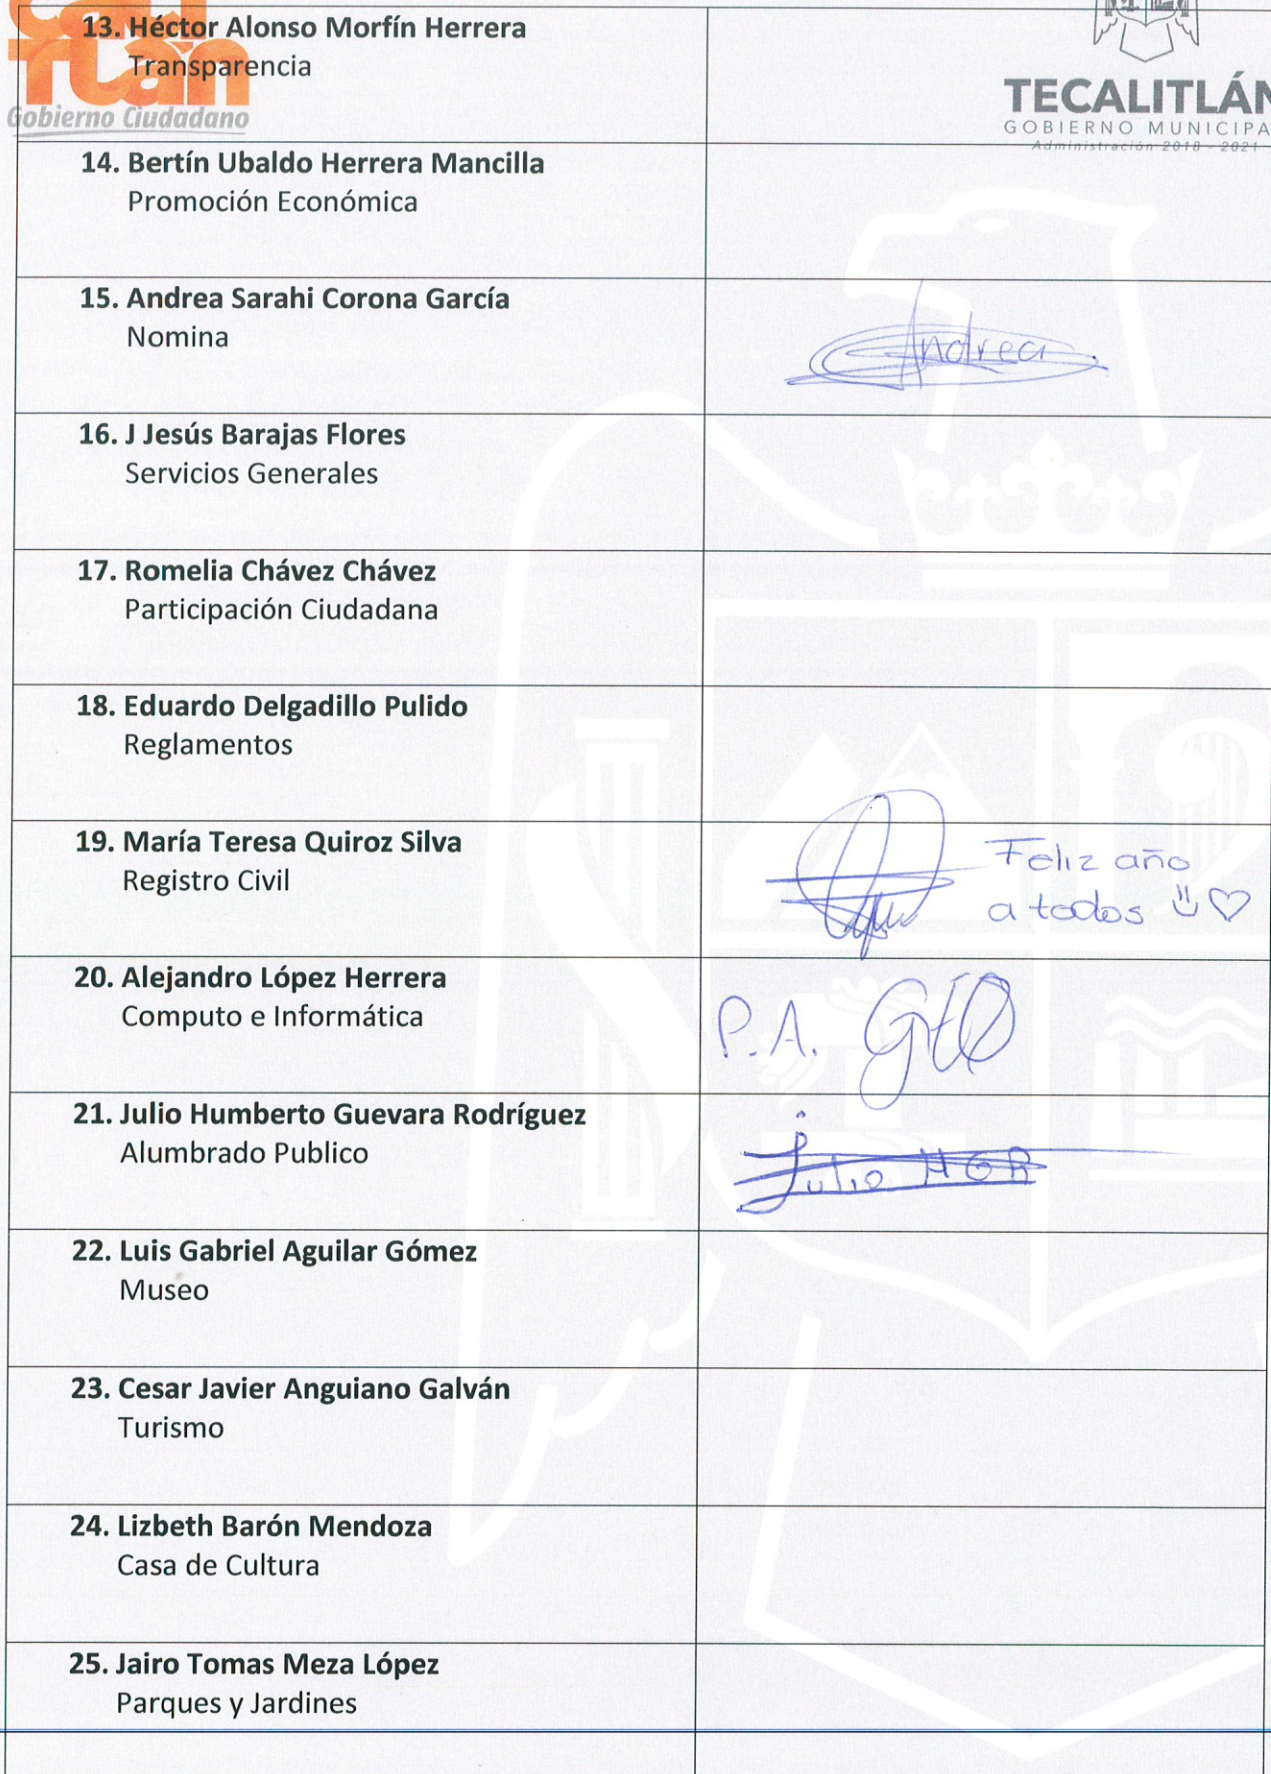 13. Héctor Alonso Morfín Herrera
Transparencia
Gobierno Ciudadano
TECALITLÁN
GOBIERNO MUNICIPA
Administración 2018 - 2021
14. Bertín Ubaldo Herrera Mancilla
Promoción Económica
15. Andrea Sarahi Corona García
Nomina
Andrea
16. J Jesús Barajas Flores
Servicios Generales
17. Romelia Chávez Chávez
Participación Ciudadana
18. Eduardo Delgadillo Pulido
Reglamentos
19. María Teresa Quiroz Silva
Registro Civil
Feliz año
a todos
20. Alejandro López Herrera
Computo e Informática
P.A.
21. Julio Humberto Guevara Rodríguez
Alumbrado Publico
Julio HGR
22. Luis Gabriel Aguilar Gómez
Museo
23. Cesar Javier Anguiano Galván
Turismo
24. Lizbeth Barón Mendoza
Casa de Cultura
25. Jairo Tomas Meza López
Parques y Jardines